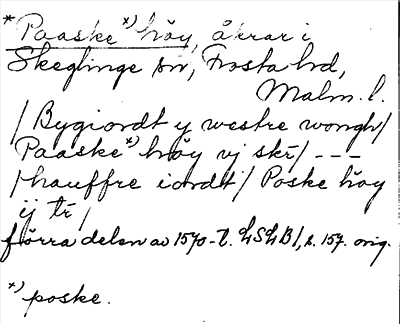 *Paaske*) höy, åkrar i
Skeglinge sn, Frosta hd,
Malm. l.
/ Bygiordt y westre wongh/
Paaske*) höy vj skr/ ---
/hauffre iordt/ Poske höy
ij tr /
förra delen av 1570-t. LSLB 1, s. 157. orig.
*) poske.